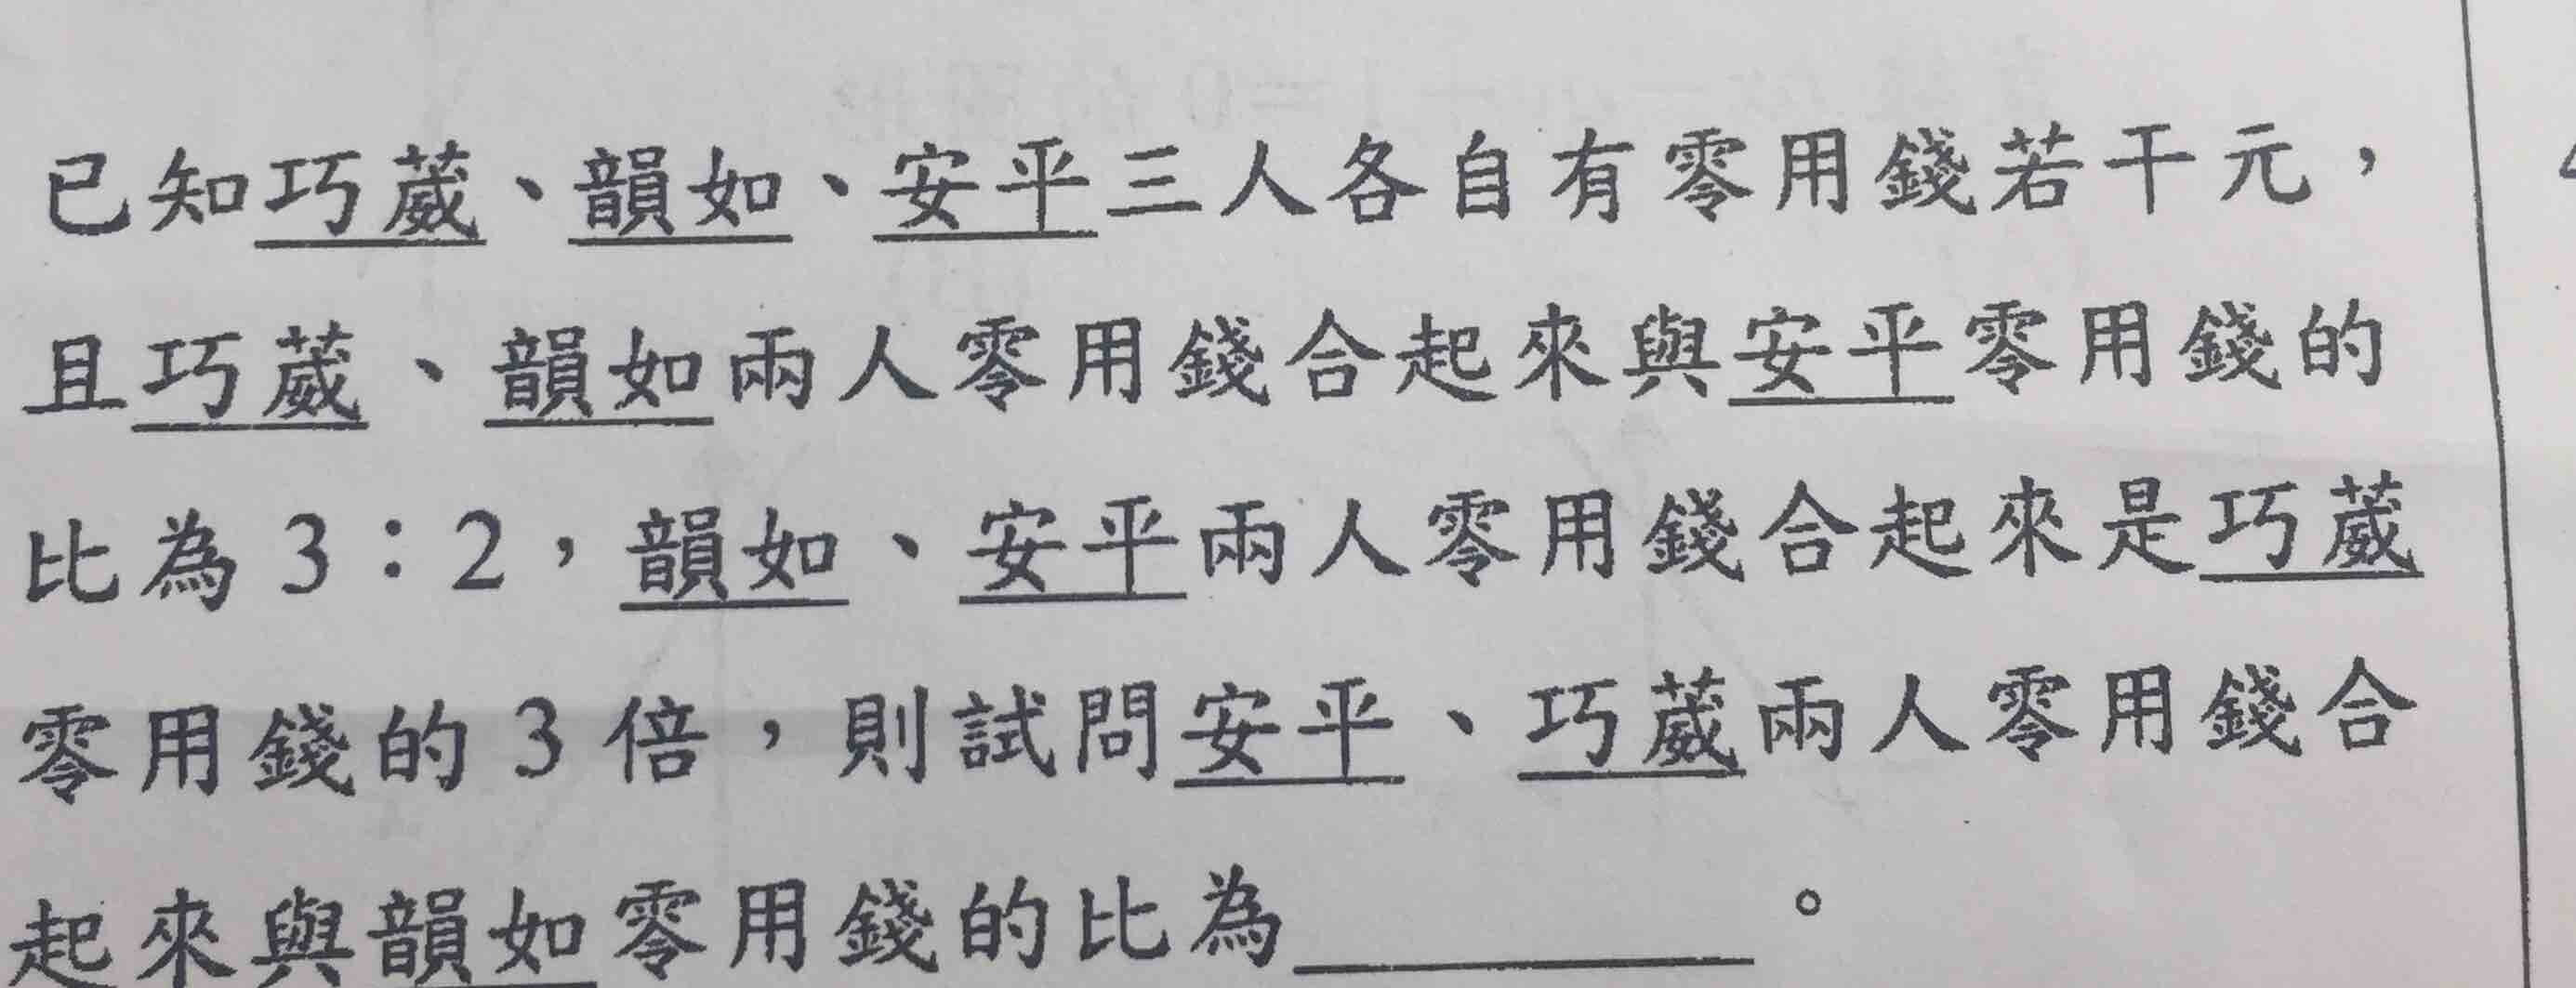 已知巧葳、韻如、安平三人各自有零用錢若干元，
且巧葳、韻如兩人零用錢合起來與安平零用錢的
比為3：2，韻如、安平兩人零用錢合起來是巧葳
零用錢的3倍，則試問安平、巧葳兩人零用錢合
起來與韻如零用錢的比為＿＿＿＿。